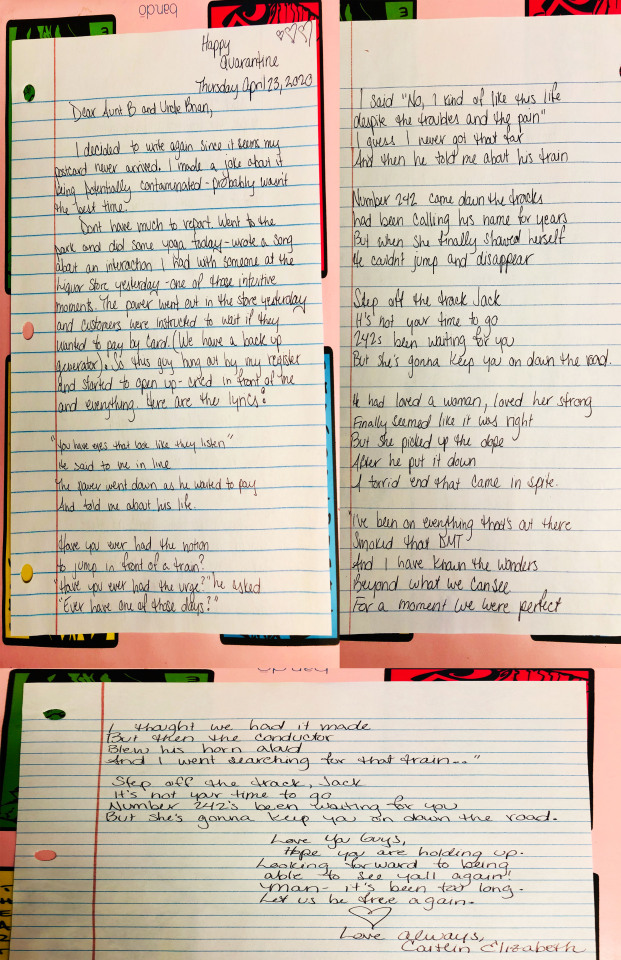 bandō
Happy
Quarantine
Thursday April 23, 2020
Dear Aunt B and Uncle Brian,
I decided to write again since it seems my
postcard never arrived. I made a joke about it
being potentially contaminated - probably wasn't
the best time.
Dont have much to report. Went to the
park and did some yoga today - wrote a song
about an interaction I had with someone at the
liquor store yesterday - one of those intuitive
moments. The power went out in the store yesterday
and customers were instructed to wait if they
wanted to pay by card. (We have a back up
generator). So this guy hung out by my register
and started to open up - cried in front of me
and everything. Here are the lyrics:
"You have eyes that look like they listen"
He said to me in line
The power went down as he waited to pay
And told me about his life.
Have you ever had the notion
to jump in front of a train?
"Have you ever had the urge?" he asked
"Ever have one of those days?"
I said "No, I kind of like this life
despite the troubles and the pain"
I guess I never got that far
And then he told me about his train
Number 242 came down the tracks
had been calling his name for years
But when she finally showed herself
He couldn't jump and disappear
Step off the track Jack
It's not your time to go
242s been waiting for you
But she's gonna keep you on down the road.
He had loved a woman, loved her strong
Finally seemed like it was right
But she picked up the dope
After he put it down
A torrid end that came in spite.
I've been on everything that's out there
Smoked that DMT
And I have known the wonders
Beyond what we can see
For a moment we were perfect
I thought we had it made
But then the conductor
Blew his horn aloud
And I went searching for that train..."
Step off the track, Jack
It's not your time to go
Number 242's been waiting for you
But she's gonna keep you on down the road.
Love You Guys,
Hope you are holding up.
Looking forward to being
able to see yall again!
Man - it's been too long.
Let us be free again.
Love always,
Caitlin Elizabeth